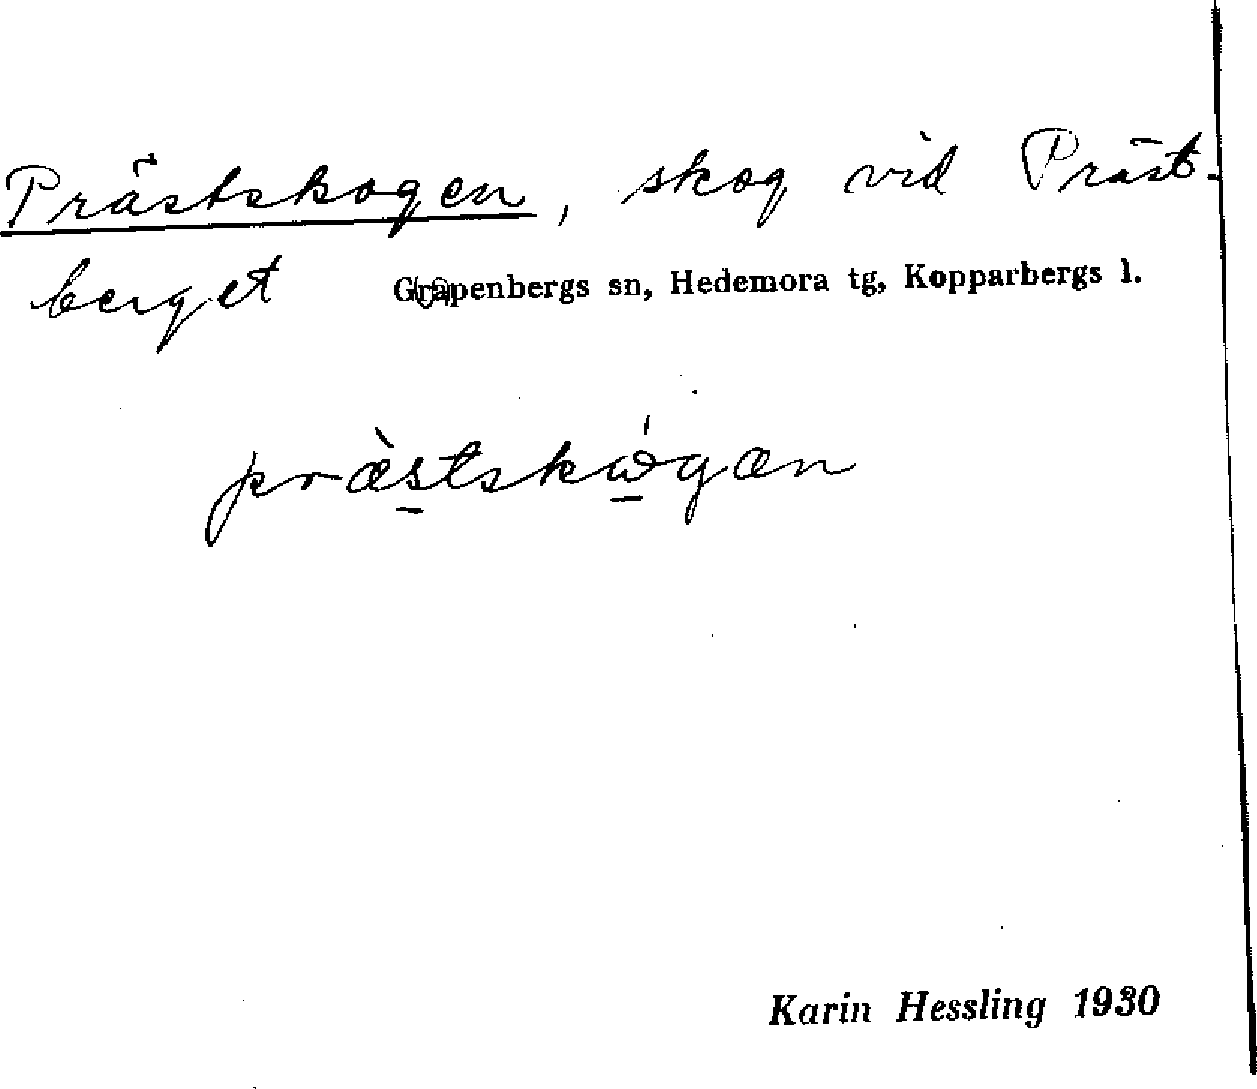 Prästskogen, skog vid Präst-
berget Grapenbergs sn, Hedemora tg, Kopparbergs l.
præ̀stskω̇́gæn
Karin Hessling 1930